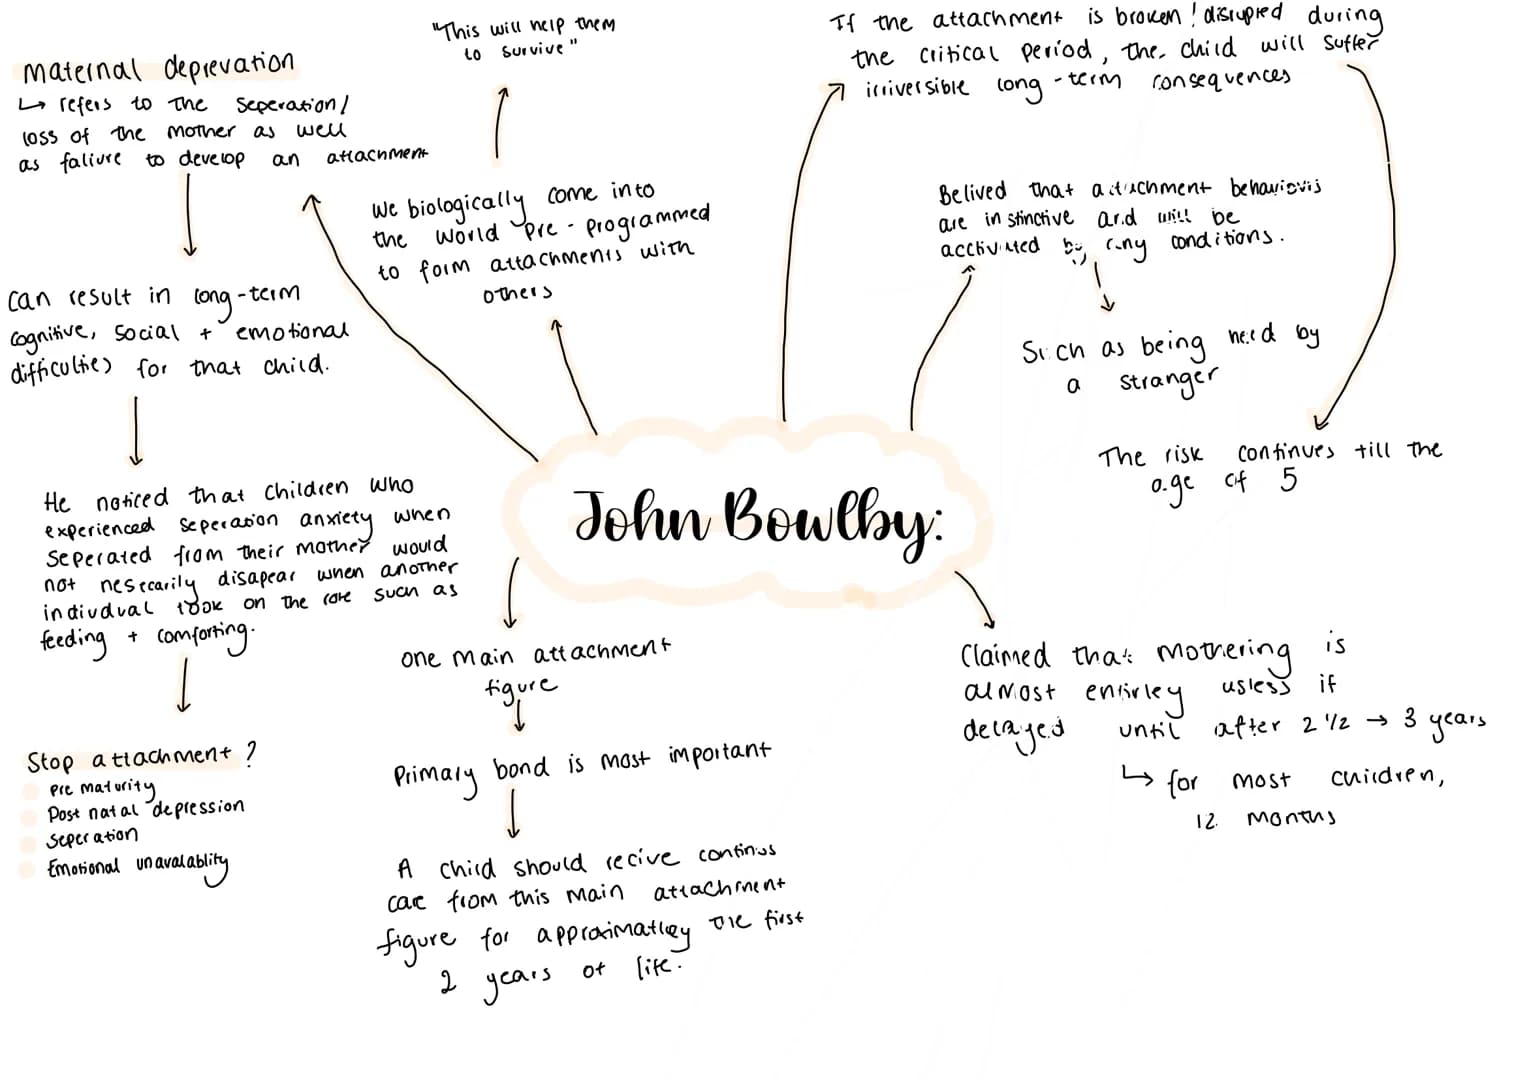 "This will help them
to survive"
If the attachment is broken / disrupted during
the critical period, the child will suffer
irriversible long-term consequences
maternal deprevation
↳ refers to the seperation/
loss of the mother as well
as faliure to develop an attachment
We biologically come into
the world pre-programmed
to form attachments with
others
Belived that attachment behaviovis
are instinctive and will be
acctivated by any conditions.
can result in long-term
cognitive, social + emotional
difficulties for that child.
Such as being heed by
a stranger
The risk continues till the
age of 5
He noticed that children who
experienced seperation anxiety when
seperated from their mother would
not nescecarily disapear when another
indivdual took on the role such as
feeding + comforting.
John Bowlby:
one main attachment
figure
Claimed that mothering is
almost entirley usless if
delayed until after 2 1/2 → 3 years
↳ for most children,
12 months
Stop attachment?
Pre maturity
Post natal depression
seperation
Emotional unavalablity
Primary bond is most important
A child should recive continus
care from this main attachment
figure for approximatley the first
2 years of life.